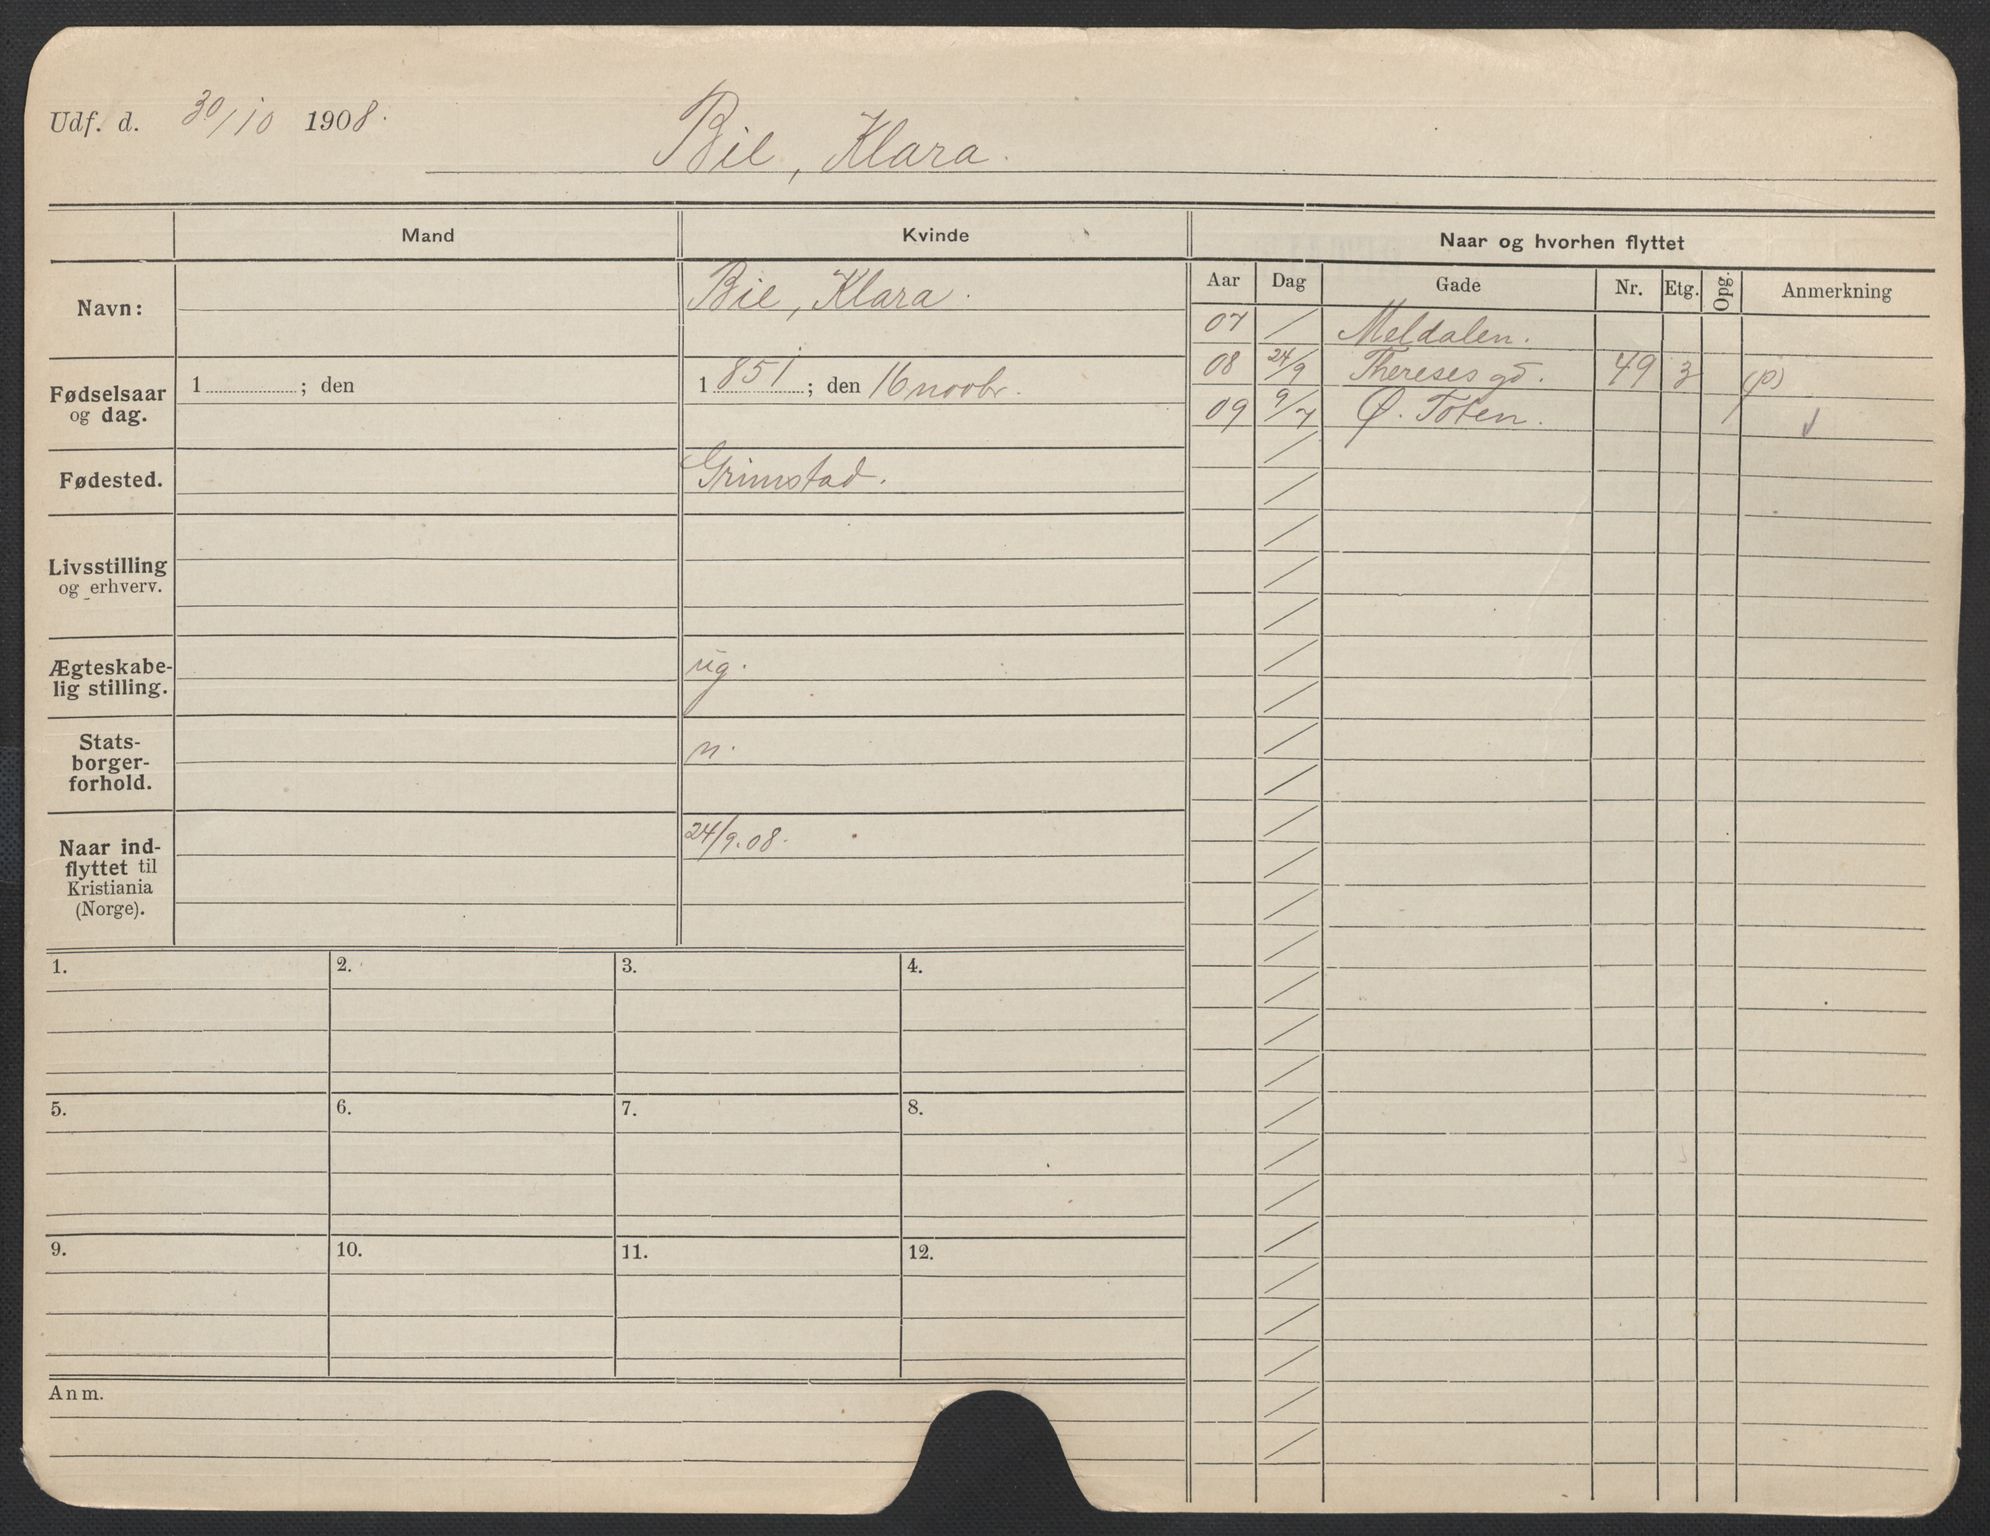 Udf. d. 30/10 1908.
Bie, Klara.
Mand Kvinde Naar og hvorhen flyttet
Aar Dag Gade Nr. Etg. Opg. Anmerkning
Navn: Bie, Klara.
Fødselsaar og dag. 1 ; den 1 851 ; den 16 novbr.
Fødested. Grimstad.
Livsstilling og erhverv.
Ægteskabe-
lig stilling. ug.
Stats-
borger-
forhold. n.
Naar ind-
flyttet til
Kristiania
(Norge). 24/9.08.
07 / Meldalen.
08 24/9 Thereses gd. 49 3 (p)
09 9/7 Ø. Toten.
1. 2. 3. 4.
5. 6. 7. 8.
9. 10. 11. 12.
Anm.